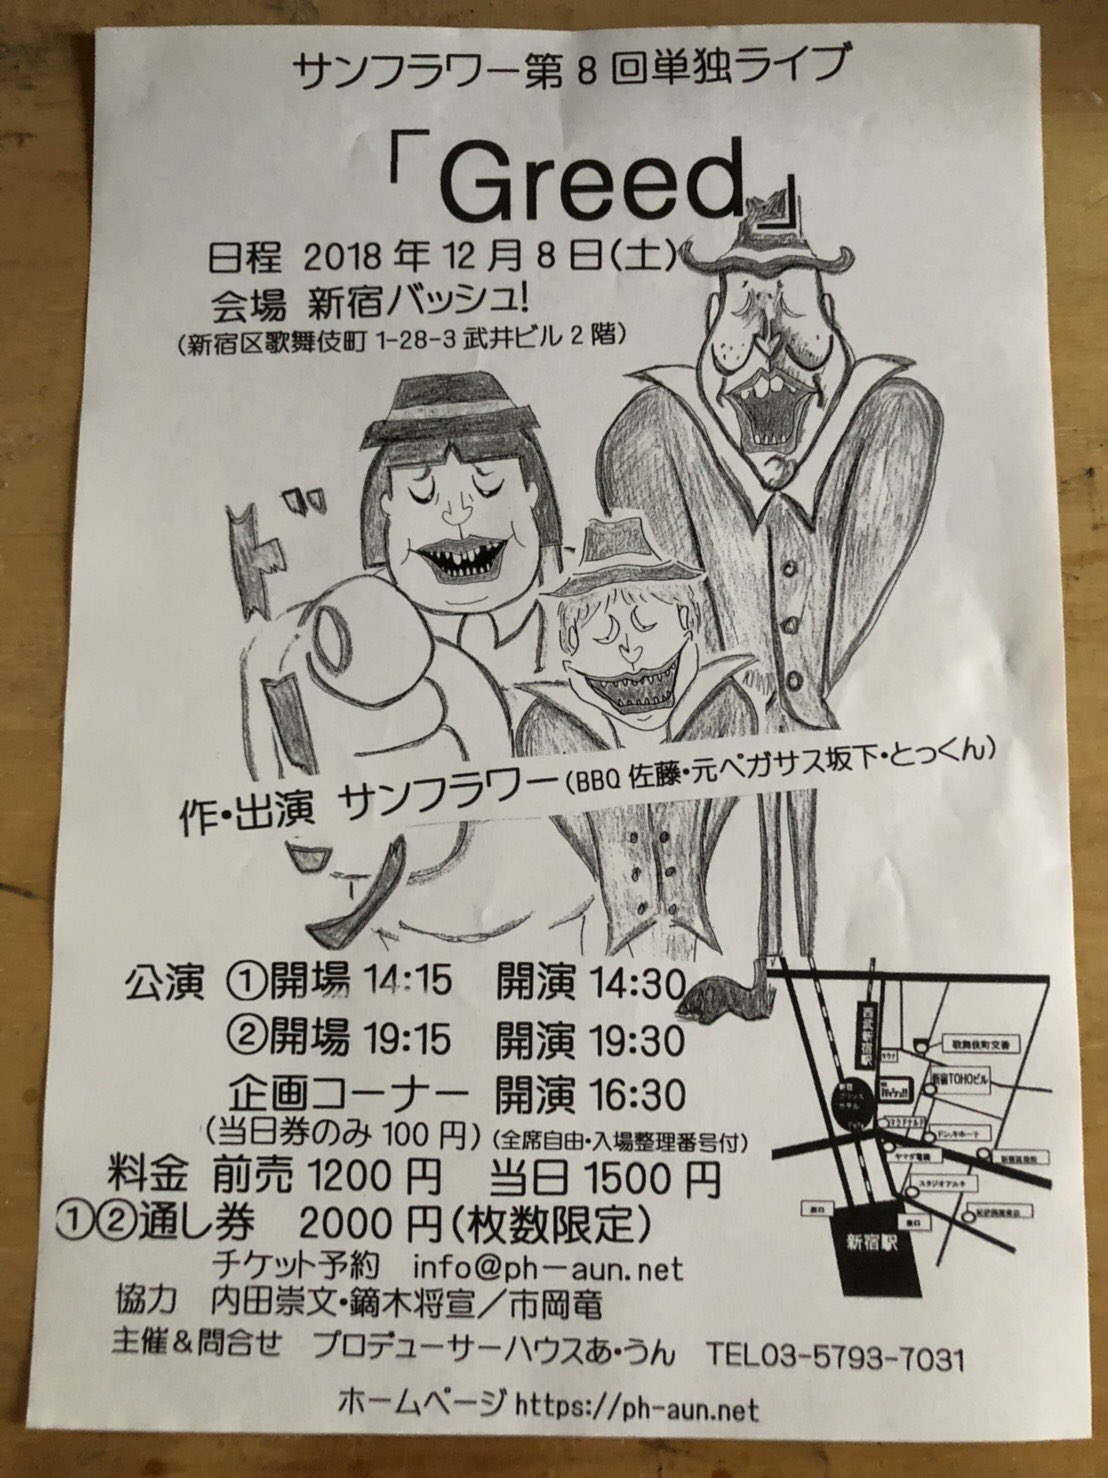 サンフラワー第8回単独ライブ
「Greed」
日程 2018年12月8日(土)
会場 新宿バッシュ!
(新宿区歌舞伎町1-28-3武井ビル2階)
ド
作・出演 サンフラワー(BBQ佐藤・元ペガサス坂下・とっくん)
公演 ①開場14:15 開演14:30
②開場19:15 開演19:30
企画コーナー 開演16:30
(当日券のみ100円)(全席自由・入場整理番号付)
料金 前売1200円 当日1500円
①②通し券 2000円(枚数限定)
チケット予約 info@ph-aun.net
協力 内田崇文・鏑木将宣/市岡竜
主催&問合せ プロデューサーハウスあ・うん TEL03-5793-7031
ホームページhttps://ph-aun.net
西武新宿駅
歌舞伎町交番
新宿TOHOビル
マクドナルド
ドン.キホーテ
ヤマダ電機
新宿区役所
スタジオアルタ
西口
東口
新宿駅